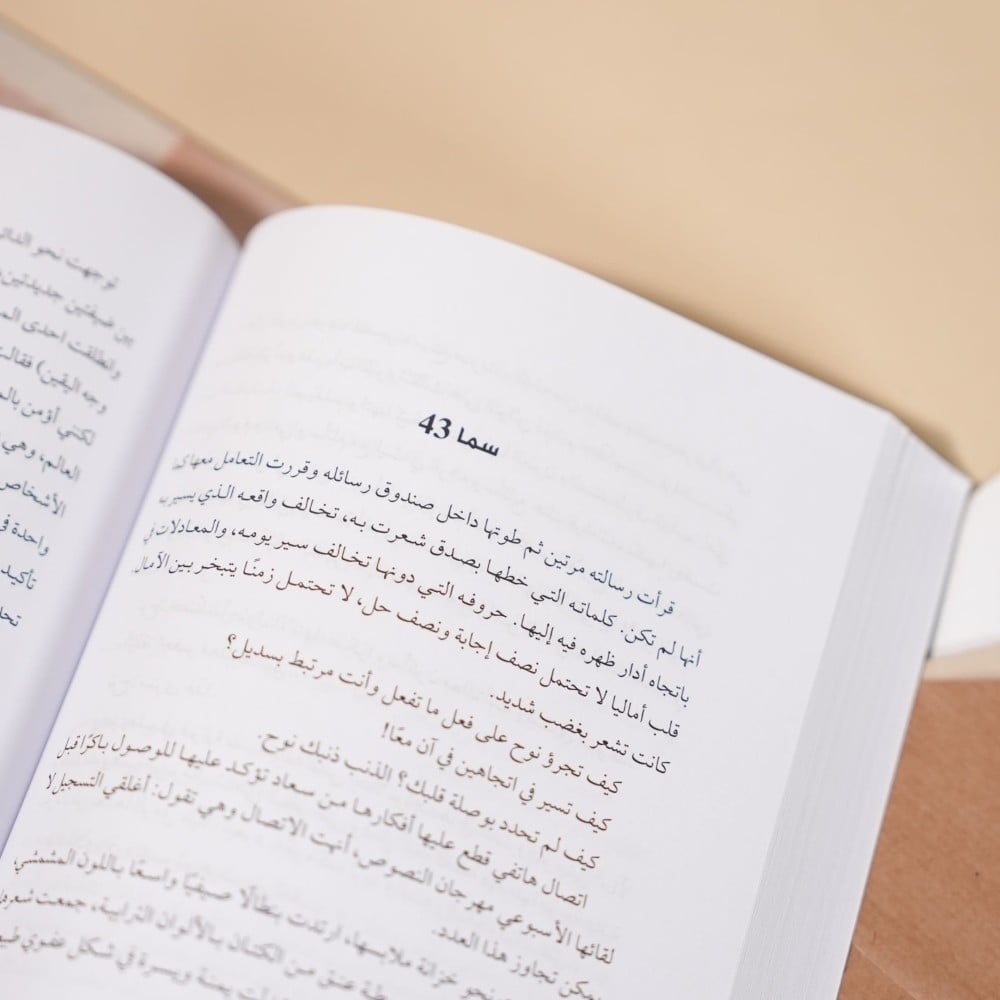 سما 43
قرأت رسالته مرتين ثم طوتها داخل صندوق رسائله وقررت التعامل معها كما
أنها لم تكن. كلماته التي خطها بصدق شعرت به، تخالف واقعه الذي يسير به
باتجاه أدار ظهره فيه إليها. حروفه التي دونها تخالف سير يومه، والمعادلات في
قلب أماليا لا تحتمل نصف إجابة ونصف حل، لا تحتمل زمنًا يتبخر بين الآمال.
كانت تشعر بغضب شديد.
كيف تجرؤ نوح على فعل ما تفعل وأنت مرتبط بسديل؟
كيف تسير في اتجاهين في آن معًا!
كيف لم تحدد بوصلة قلبك؟ الذنب ذنبك نوح.
اتصال هاتفي قطع عليها أفكارها من سعاد تؤكد عليها للوصول باكرًا قبل
لقائها الأسبوعي مهرجان النصوص، أنهت الاتصال وهي تقول: أغلقي التسجيل لا
يمكن تجاوز هذا العدد.
نحو خزانة ملابسها، ارتدت بنطالًا صيفيًا واسعًا باللون المشمشي
عنق من الكتان بالألوان الترابية، جمعت شعرها
يمنة ويسرة في شكل عفوي
توجهت نحو
بين ضيفتين جديدتين
وانطلقت احدى
وجه اليقين) فقالت
لكني أؤمن
العالم، وهي
الأشخاص
واحدة
تأكيد